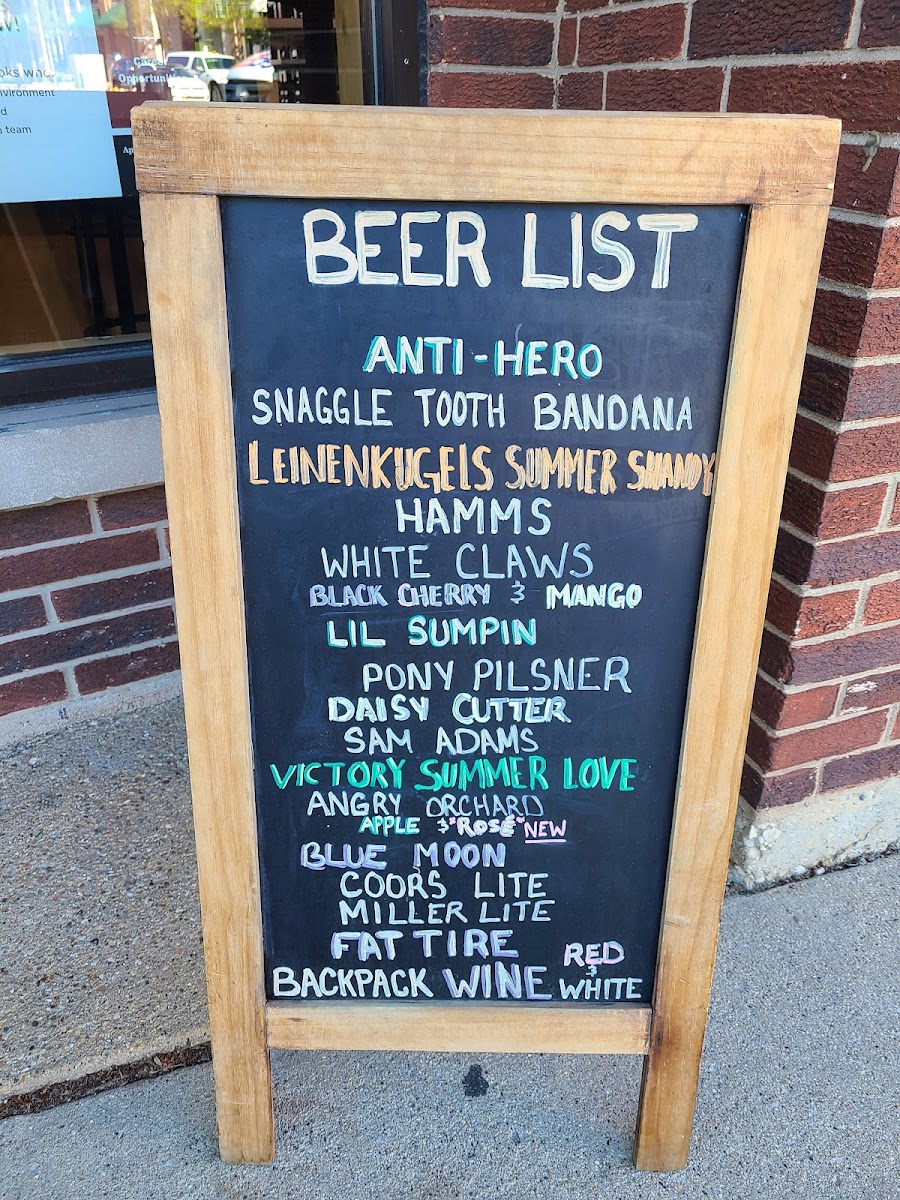 oks who
nvironment
d
a team
Career
Opportuniti
Ap
BEER LIST
ANTI-HERO
SNAGGLE TOOTH BANDANA
LEINENKUGELS SUMMER SHANDY
HAMMS
WHITE CLAWS
BLACK CHERRY & MANGO
LIL SUMPIN
PONY PILSNER
DAISY CUTTER
SAM ADAMS
VICTORY SUMMER LOVE
ANGRY ORCHARD
APPLE & "ROSÉ" NEW
BLUE MOON
COORS LITE
MILLER LITE
FAT TIRE
BACKPACK WINE RED & WHITE